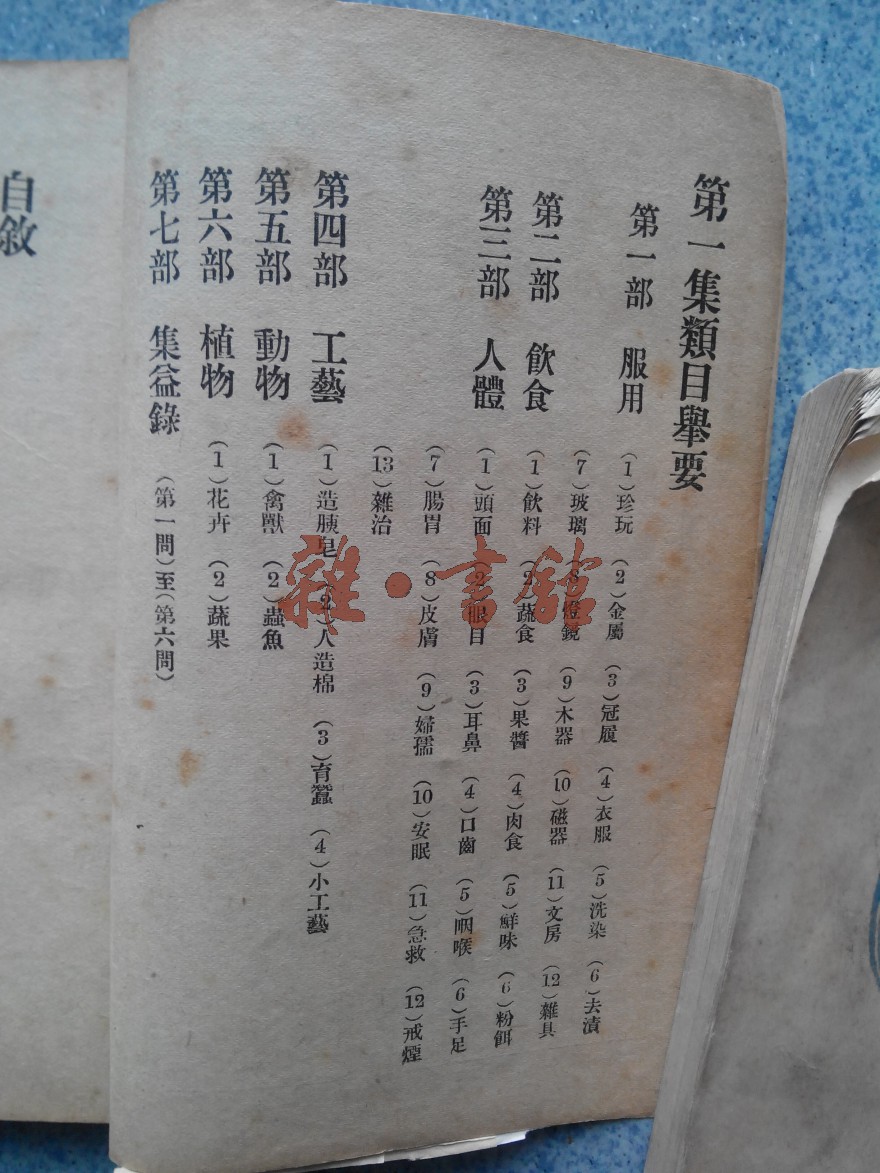 第一集類目舉要
第一部 服用 (1)珍玩 (2)金屬 (3)冠履 (4)衣服 (5)洗染 (6)去漬
(7)玻璃 (8)燈鏡 (9)木器 (10)磁器 (11)文房 (12)雜具
第二部 飲食 (1)飲料 (2)蔬食 (3)果醬 (4)肉食 (5)鮮味 (6)粉餌
第三部 人體 (1)頭面 (2)眼目 (3)耳鼻 (4)口齒 (5)咽喉 (6)手足
(7)腸胃 (8)皮膚 (9)婦孺 (10)安眠 (11)急救 (12)戒煙
(13)雜治
第四部 工藝 (1)造胰皂 (2)人造棉 (3)育蠶 (4)小工藝
第五部 動物 (1)禽獸 (2)蟲魚
第六部 植物 (1)花卉 (2)蔬果
第七部 集益錄 (第一問)至(第六問)
自敘
雜·書館